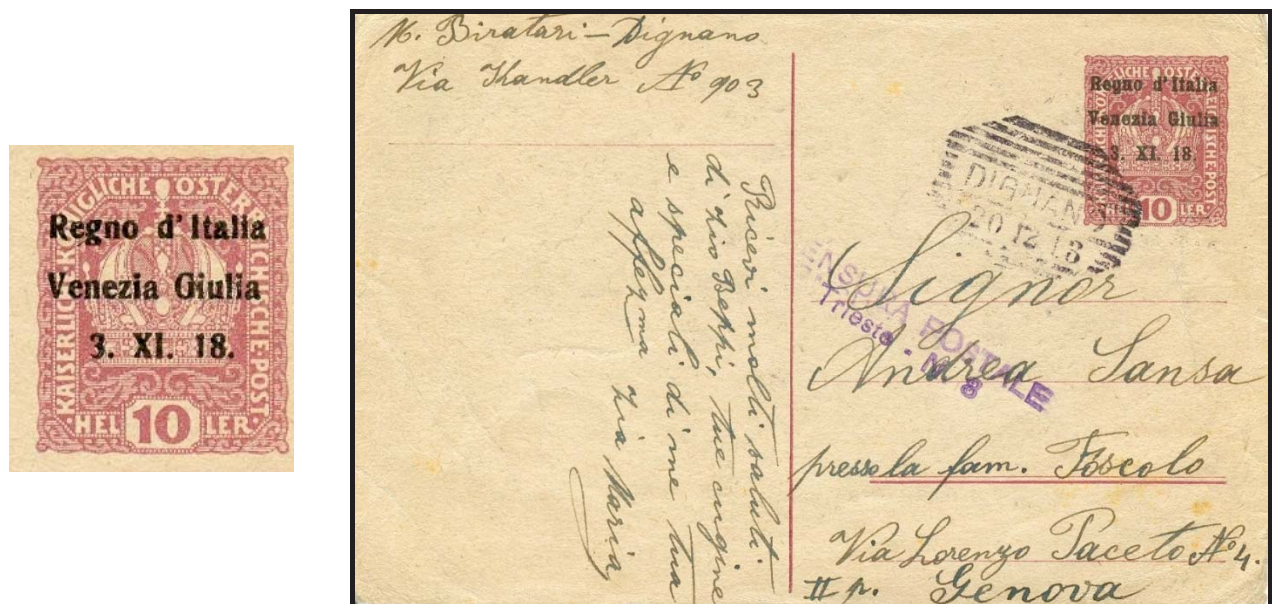 KAISERLICHE KÖNIGLICHE ÖSTERREICHISCHE POST
Regno d'Italia
Venezia Giulia
3. XI. 18.
HEL 10 LER
M. Biratari - Dignano
Via Kandler No 903
Ricevi molti saluti
di zio Beppi, tue cugine
e speciali di me tua
affezma zia Maria
Regno d'Italia
Venezia Giulia
3. XI. 18.
HEL 10 LER
DIGNANO
20 12 18
CENSURA POSTALE
Trieste - N. 8
Signor
Andrea Sansa
presso la fam. Foscolo
Via Lorenzo Paceto No 4.
II p. Genova